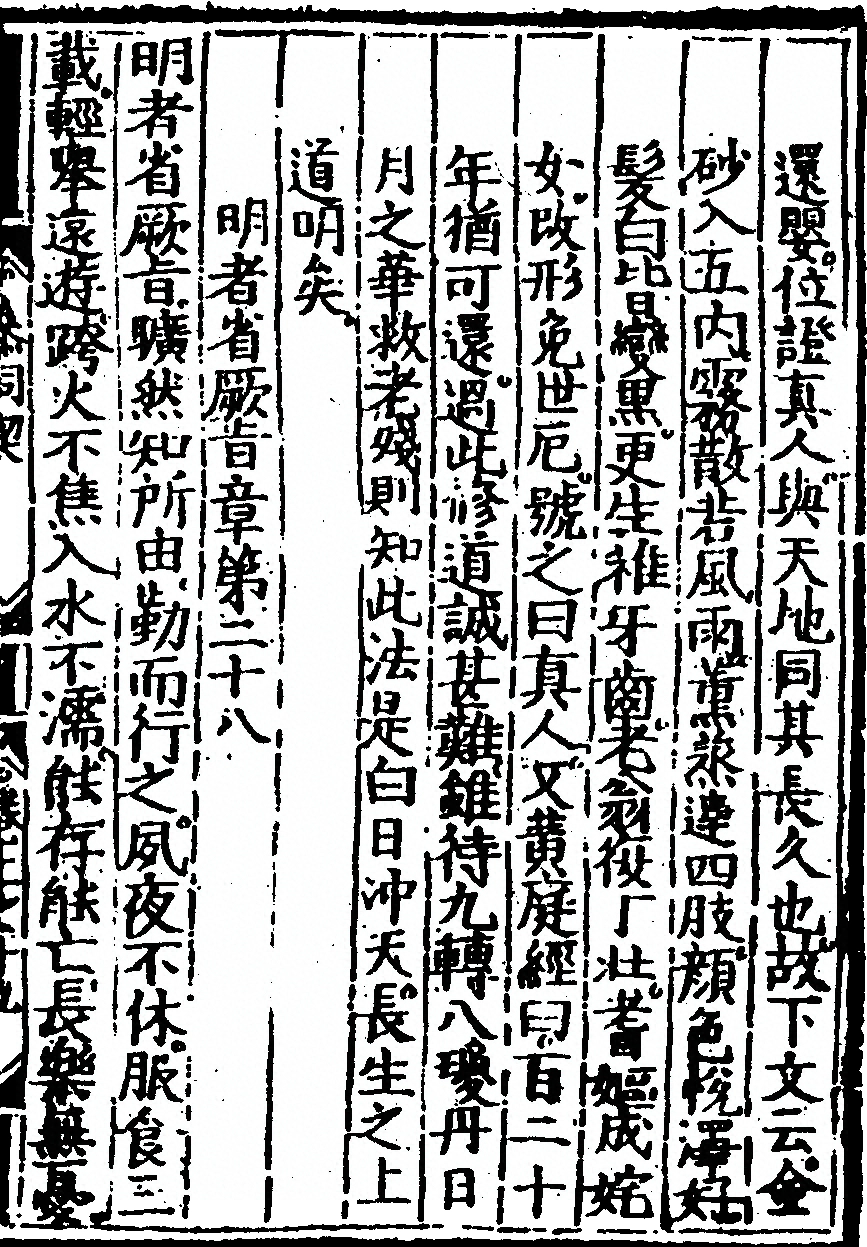 還嬰位證真人與天地同其長久也故下文云金
砂入五内霧散若風雨薰烝達四肢顔色悅澤好
髮白皆變黒更生雅牙齒老翁復丁壯耆嫗成姹
女改形免世厄號之曰真人又黄庭經曰百二十
年猶可還過此修道誠甚難錐待九轉八瓊丹日
月之華救老殘則知此法是白日冲天長生之上
道明矣
明者省厥旨章第二十八
明者省厥旨曠然知所由勤而行之夙夜不休服食三
載輕舉遠遊跨火不焦入水不濡能存能亡長樂無憂
參同契